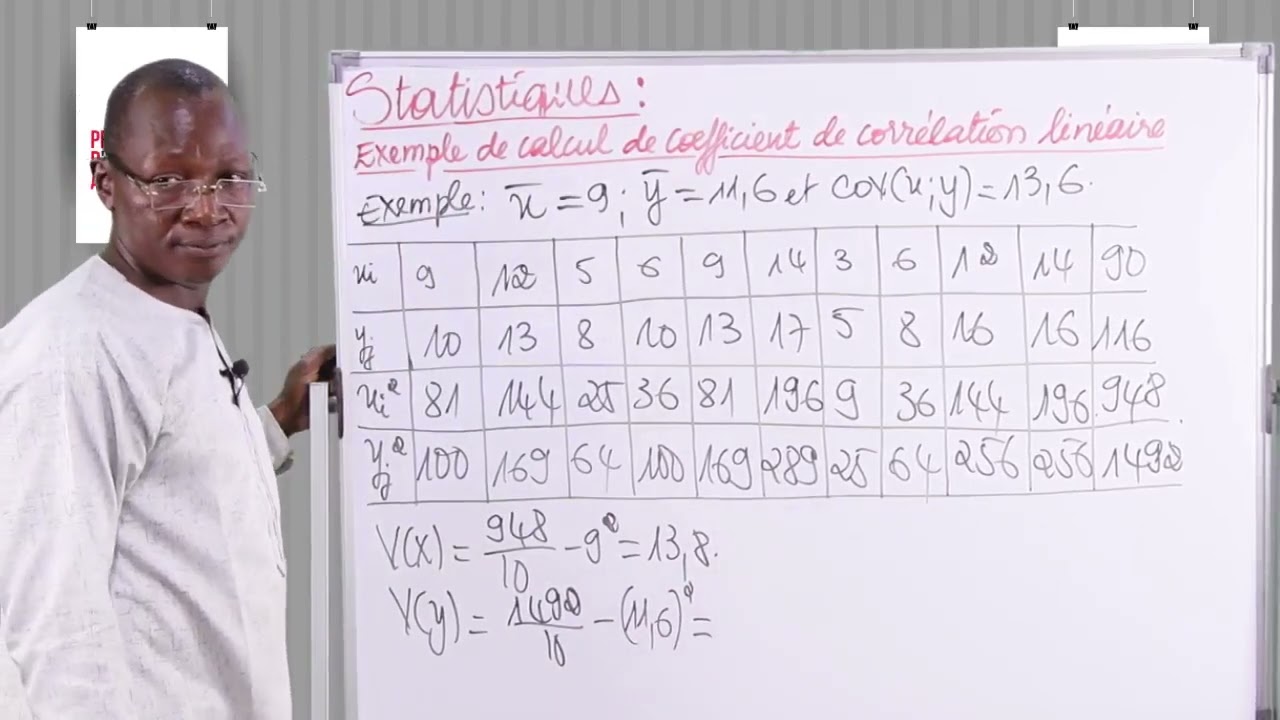 Statistiques :
Exemple de calcul de coefficient de corrélation linéaire
Exemple : x̄ = 9 ; ȳ = 11,6 et cov(x;y) = 13,6.
xi 9 12 5 6 9 14 3 6 12 14 90
yj 10 13 8 10 13 17 5 8 16 16 116
xi² 81 144 25 36 81 196 9 36 144 196 948
yj² 100 169 64 100 169 289 25 64 256 256 1492
V(x) = 948/10 - 9² = 13,8.
V(y) = 1492/10 - (11,6)² =